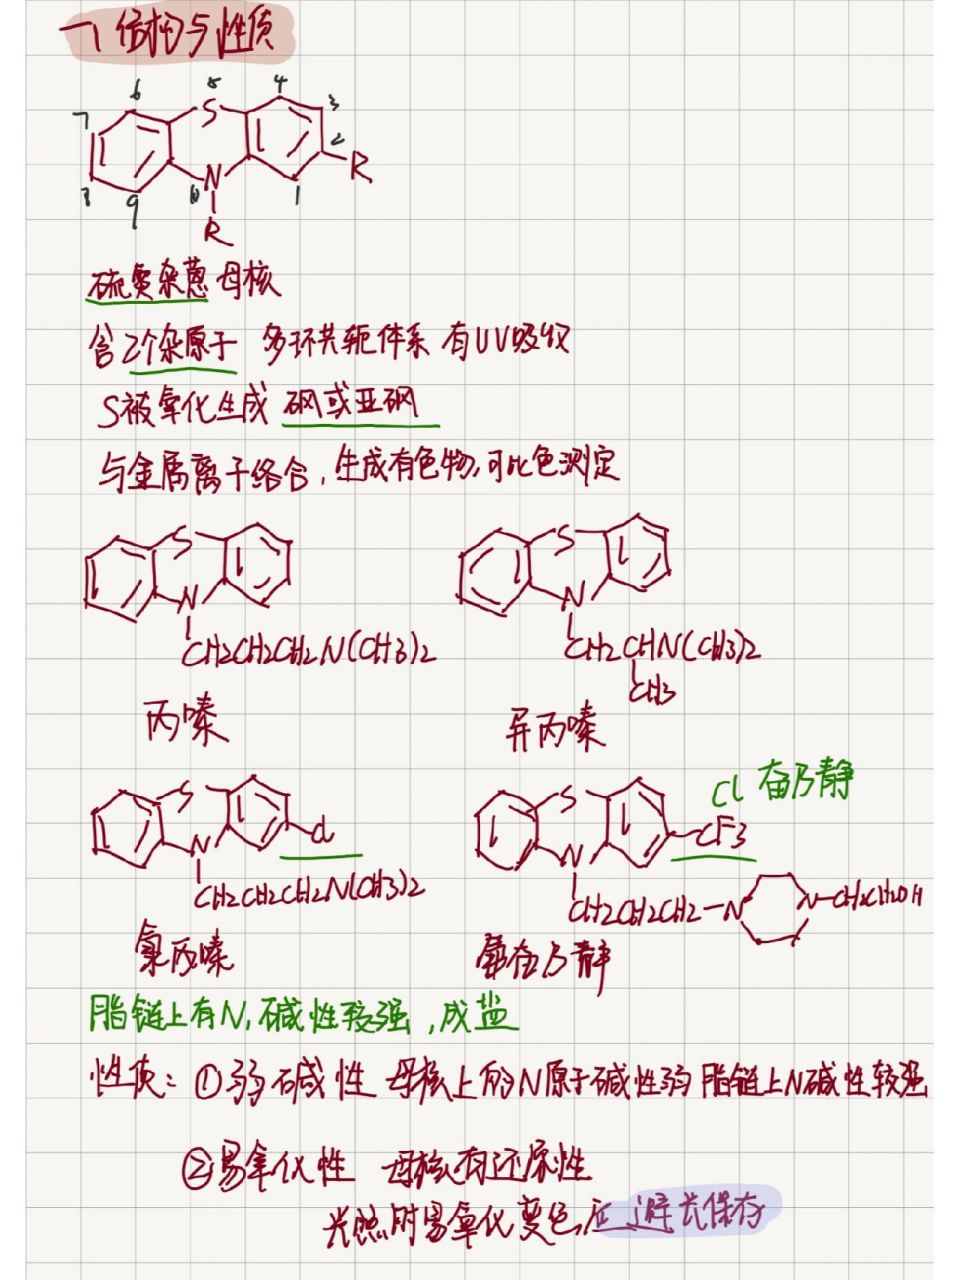 一、结构与性质
6 5 4
7 S 3
2
R
8 9 10 N 1
R
硫氮杂蒽母核
含2个杂原子 多环共轭体系 有UV吸收
S被氧化生成 砜或亚砜
与金属离子络合,生成有色物,可比色测定
S S
N N
CH2CH2CH2N(CH3)2 CH2CHN(CH3)2
CH3
丙嗪 异丙嗪
Cl 奋乃静
S Cl S CF3
N N
CH2CH2CH2N(CH3)2 CH2CH2CH2-N N-CH2CH2OH
氯丙嗪 氟奋乃静
脂链上有N,碱性较强,成盐
性质:①弱碱性 母核上的N原子碱性弱 脂链上N碱性较强
②易氧化性 母核有还原性
光照时易氧化变色,应避光保存